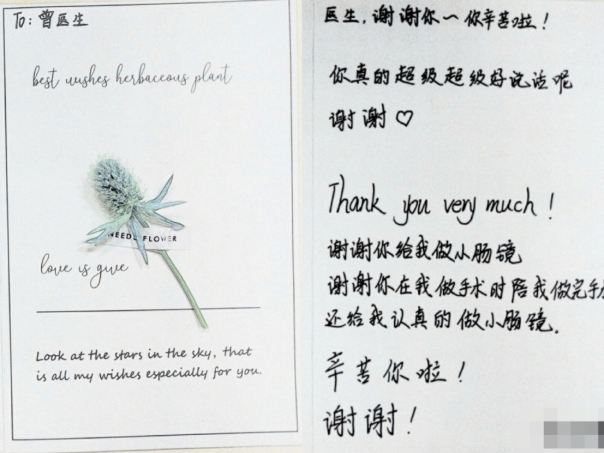 To: 曾医生
best wishes herbaceous plant
NEEDS FLOWER
love is give
Look at the stars in the sky, that
is all my wishes especially for you.
医生，谢谢你～你辛苦啦！
你真的超级超级好说话呢
谢谢♡
Thank you very much！
谢谢你给我做小肠镜
谢谢你在我做手术时陪我做完手
还给我认真的做小肠镜.
辛苦你啦！
谢谢！